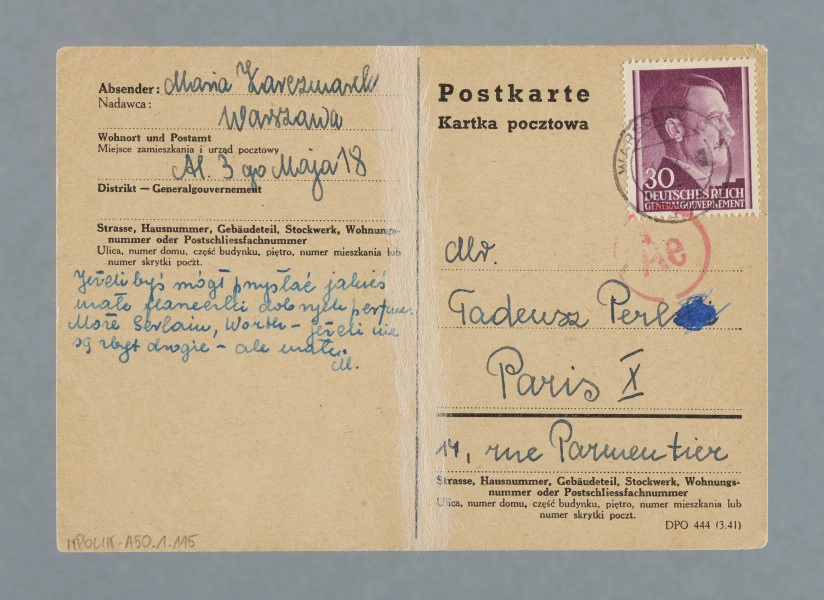 Absender: Maria Karczmarek
Nadawca:
Warszawa
Wohnort und Postamt
Miejsce zamieszkania i urząd pocztowy
Al. 3 go Maja 18
Distrikt — Generalgouvernement
Strasse, Hausnummer, Gebäudeteil, Stockwerk, Wohnungs-
nummer oder Postschliessfachnummer
Ulica, numer domu, część budynku, piętro, numer mieszkania lub
numer skrytki poczt.
Jeżeli byś mógł przysłać jakieś
małe flaneczki dobrych perfum.
Może Gerlain, Worth – jeżeli nie
są zbyt drogie – ale małe.
M.
MPOLIN-A50.1.115
Postkarte
Kartka pocztowa
30
DEUTSCHES REICH
GENERALGOUVERNEMENT
Ae
Tadeusz Perl
Paris X
14, rue Parmentier
Strasse, Hausnummer, Gebäudeteil, Stockwerk, Wohnungs-
nummer oder Postschliessfachnummer
Ulica, numer domu, część budynku, piętro, numer mieszkania lub
numer skrytki poczt.
DPO 444 (3.41)